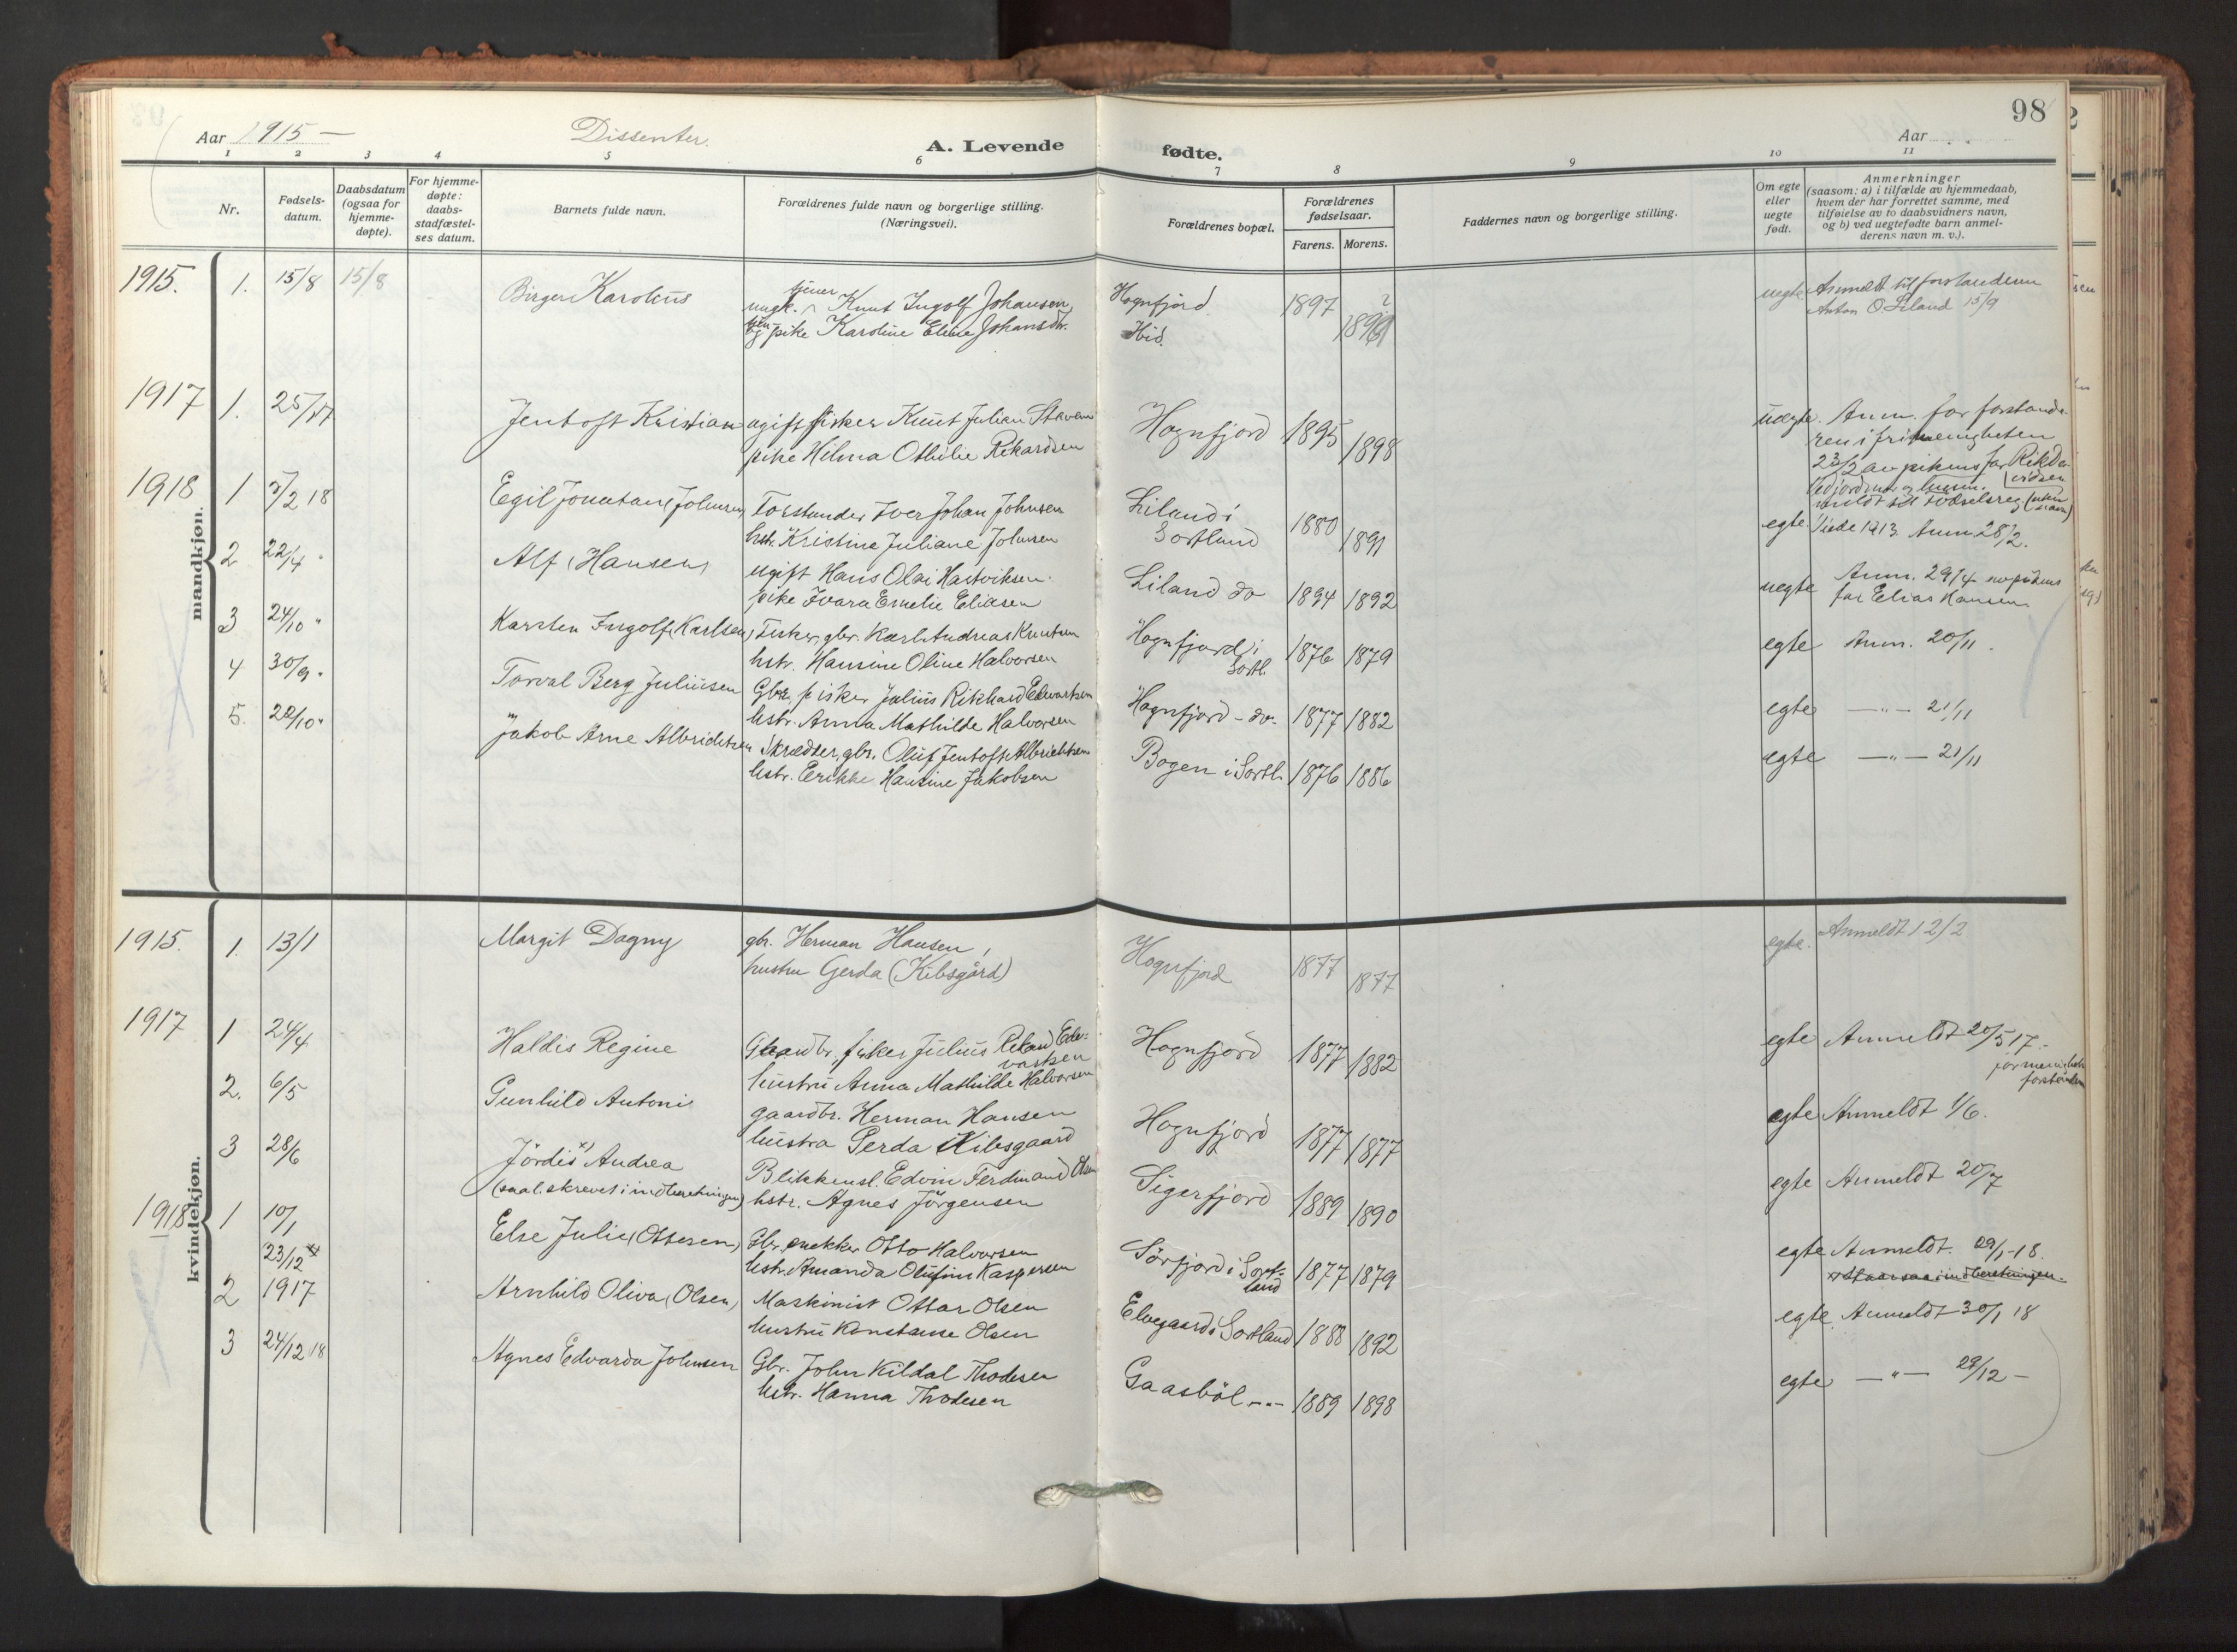 98
Aar 1915 —
Dissenter.
A. Levende
fødte.
Aar
1 2 3 4 5 6 7 8 9 10 11
Nr.
Fødsels-
datum.
Daabsdatum
(ogsaa for
hjemme-
døpte).
For hjemme-
døpte:
daabs-
stadfæstel-
ses datum.
Barnets fulde navn.
Forældrenes fulde navn og borgerlige stilling.
(Næringsvei).
Forældrenes bopæl.
Forældrenes
fødselsaar.
Farens. Morens.
Faddernes navn og borgerlige stilling.
Om egte
eller
uegte
født.
Anmerkninger
(saasom: a) i tilfælde av hjemmedaab,
hvem der har forrettet samme, med
tilføielse av to daabsvidners navn,
og b) ved uegtefødte barn anmel-
derens navn m. v.).
mandkjøn.
1915. 1. 15/8 15/8 Birger Karolius
ungk. tjener Knut Ingolf Johansen, Hognfjord 1897 uegte Anmeldt til forstanderen
pike Karoline Eline Johansdtr. Ibid. Anton O. Liland 15/9
1917 1. Jentoft Kristian ugift fisker Knut Julian
pike Hilma Othilie Rikardsen Hognfjord 1895 1898 uegte Anm. for forstande-
ren i frimenigheten
23/2 av pikens far
1918 1 7/2 18 Egil Jonatan (Johnsen) Forstander Iver Johan Johnsen
hstr. Kristine Juliane Johnsen Liland i
Sortland 1880 1891 egte Viede 1913. Anm. 28/2.
2 22/4 " Alf (Hansen) ugift Hans Olai Hartviksen.
pike Ivara Emelie Eliasen Liland do 1894 1892 uegte Anm. 29/4 av pikens
far Elias Hansen
3 24/10 " Karsten Ingolf (Karlsen) Fisker, gbr. Karl Andreas Knutsen
hstr. Hansine Oline Halvorsen Hognfjord i
Sortl. 1876 1879 egte Anm. 20/11.
4 30/9 " Torval Berg Juliussen Gbr. fisker Julius Rikhard Edvartsen
hstr. Anna Mathilde Halvorsen Hognfjord - do - 1877 1882 egte — " — 21/11
5. 22/10 " Jakob Arne Albrichtsen Skrædder, gbr. Oluf Jentoft Albrichtsen
hstr. Erikke Hansine Jakobsen Bogen i Sortl. 1876 1886 egte — " — 21/11
kvindekjøn.
1915. 1. 13/1 Margit Dagny gbr. Herman Hansen,
hustru Gerda (Kibsgård) Hognfjord 1877 1877 egte. Anmeldt 12/2
1917 1 24/4 Haldis Regine Gaardbr. fisker Julius Rikard Ede-
vartsen
hustru Anna Mathilde Halvorsen Hognfjord 1877 1882 egte Anmeldt 20/5 17.
2. 6/5 Gunhild Antoni gaardbr. Herman Hansen
hustru Gerda Kibsgaard Hognfjord 1877 1877 egte Anmeldt 1/6.
3 28/6 Jördis x) Andrea
(saal. skrevet i indberetningen) Blikkensl. Edvin Ferdinand Olsen
hstr. Agnes Jörgensen Sigerfjord 1889 1890 egte Anmeldt 20/7
1918 1 10/1 Else Julie (Ottesen) Gbr. snekker Otto Halvorsen
hstr. Amanda Olufine Kaspersen Sörfjord i Sort-
land 1877 1879 egte Anmeldt. 29/1-18.
x) Staar saa i indberetningen.
2 23/12 x)
1917 Arnhild Oliva (Olsen) Maskinist Ottar Olsen
hustru Konstanse Olsen Elvegaard i Sortland 1888 1892 egte Anmeldt 30/1 18
3 24/12 18 Agnes Edvarda Johnsen Gbr. John Kildal Thodesen
hstr. Hanna Thodesen Gaasböl - " - 1889 1898 egte — " — 29/12 -